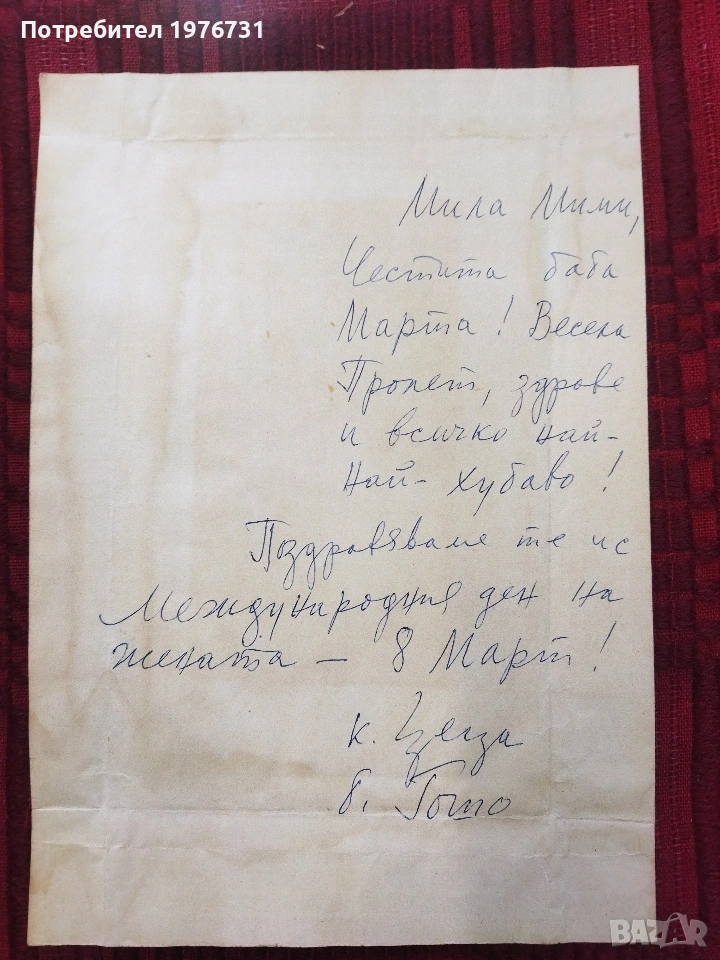 Потребител 1976731
Мила Мими,
Честита баба
Марта! Весела
Пролет, здраве
и всичко най-
най-хубаво!
Поздравяваме те и с
Международния ден на
жената – 8 Март!
к.
б. Гошо
BAZAR